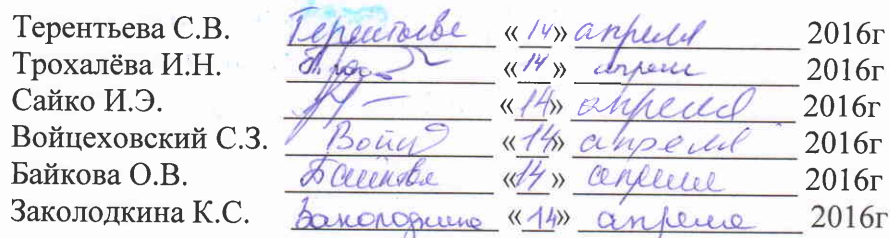 Терентьева С.В. Терентьеве «14» апреля 2016г
Трохалёва И.Н. «14» апреля 2016г
Сайко И.Э. «14» апреля 2016г
Войцеховский С.З. Войц «14» апреля 2016г
Байкова О.В. Байкова «14» апреля 2016г
Заколодкина К.С. Заколодкина «14» апреля 2016г